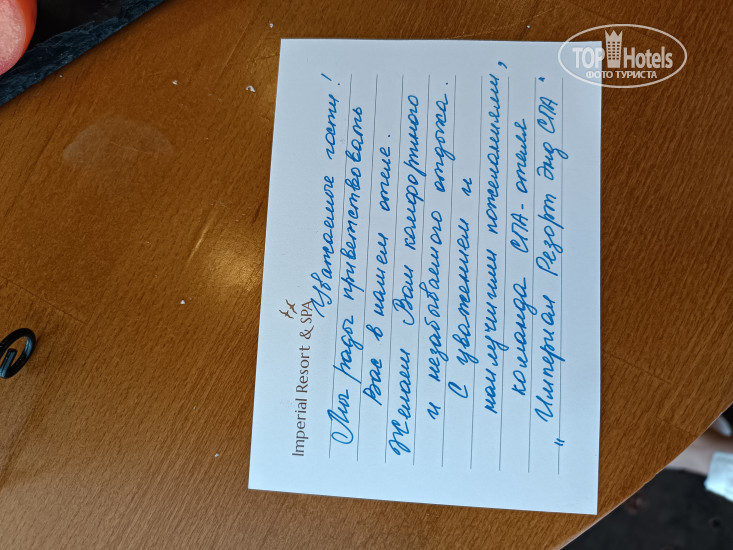 Imperial Resort & SPA
Уважаемые гости!
Мы рады приветствовать
Вас в нашем отеле.
Желаем Вам комфортного
и незабываемого отдыха.
С уважением и
наилучшими пожеланиями,
команда СПА-отеля
"Империал Резорт энд СПА"
TOP Hotels
ФОТО ТУРИСТА